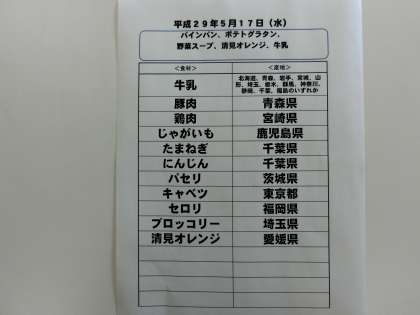 平成29年5月17日（水）
パインパン、ポテトグラタン、
野菜スープ、清見オレンジ、牛乳
＜食材＞ ＜産地＞
牛乳 北海道、青森、岩手、宮城、山
形、埼玉、栃木、群馬、神奈川、
静岡、千葉、福島のいずれか
豚肉 青森県
鶏肉 宮崎県
じゃがいも 鹿児島県
たまねぎ 千葉県
にんじん 千葉県
パセリ 茨城県
キャベツ 東京都
セロリ 福岡県
ブロッコリー 埼玉県
清見オレンジ 愛媛県